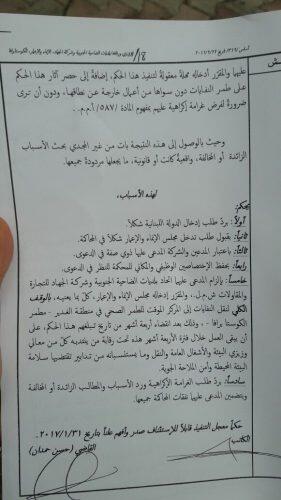 عليها والمقرر إدخاله مهلة معقولة لتنفيذ هذا الحكم، إضافةً إلى حصر آثار هذا الحكم
على طمر النفايات دون سواها من أعمال خارجة عن نطاقها، ودون أن ترى
ضرورة لفرض غرامة إكراهية بمفهوم المادة /٥٨٧/ أ.م.م.
وحيث بالوصول إلى هذه النتيجة بات من غير المجدي بحث الأسباب
الزائدة أو المخالفة، واقعيةً كانت أو قانونية، ما يجعلها مردودة جميعها.
لهذه الأسباب،
يحكم:
أولاً: بردّ طلب إدخال الدولة اللبنانية شكلاً.
ثانياً: بقبول طلب تدخل مجلس الإنماء والإعمار شكلاً في المحاكمة.
ثالثاً: باعتبار المدعين والشركة المدعى عليها ذوي صفة في الدعوى.
رابعاً: بحفظ الإختصاصين الوظيفي والمكاني للمحكمة للنظر في الدعوى.
خامساً: بإلزام المدعى عليها اتحاد بلديات الضاحية الجنوبية وشركة الجهاد للتجارة
والمقاولات ش.م.ل.، والمقرر إدخاله مجلس الإنماء والإعمار، كلٌ بما يعنيه، بالوقف
الكلي لنقل النفايات إلى المركز المؤقت للطمر الصحي في منطقة الغدير - مطمر
الكوستا برافا -، وذلك بعد انقضاء أربعة أشهر من تاريخ تبلغهم هذا الحكم، على
أن يبقى العمل خلال فترة الأربعة أشهر هذه تحت رقابة من ينتدبه كلٌ من معالي
وزيري البيئة والأشغال العامة والنقل وما يستنسبانه من تدابير تقتضيها سلامة
البيئة المحيطة وأمن الملاحة الجوية.
سادساً: بردّ طلب الغرامة الإكراهية ورد الأسباب والمطالب الزائدة أو المخالفة
وبتضمين المدعى عليها نفقات المحاكمة جميعها.
حكماً معجل التنفيذ قابلاً للإستئناف صدر وأفهم علناً بتاريخ ٢٠١٧/١/٣١
الكاتب
القاضي (حسن حمدان)